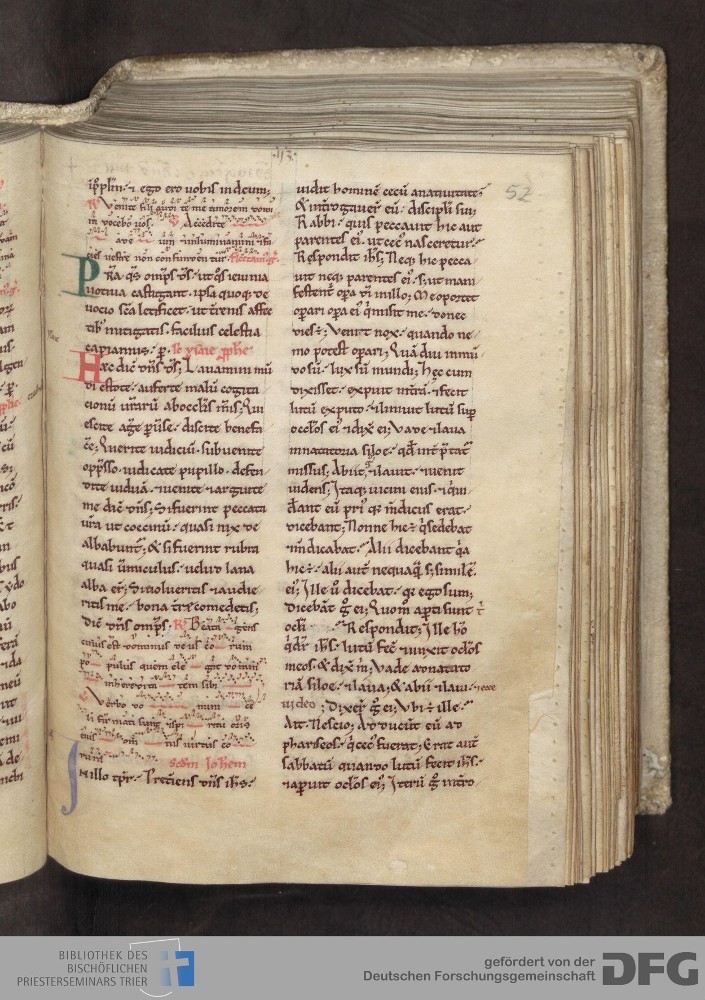 52
ip̄plm̄ · ⁊ ego ero uobis in deum;
R Venite filii audi te me timorem domi
ni docebo uos · V Accedite
ad e um ⁊ illuminamini ⁊ fa
cies uestre non confundentur ·
PRa q̄s om̄ps d̄s · ut q̄s ieiunia
uotiua castigant · ipsa quoq; de
uocio sc̄a letificet · ut terrenis affec
tib; mitigatis · facilius celestia
capiamus · p̄
Hec dic̄ dn̄s d̄s; Lauamini mū
di estote · auferte malū cogita
cionū urarū ab oculis m̄is; Qui
escite agere puerse · discite benefa
c̄e; Querite iudiciū · subuenite
opp̄sso · iudicate pupillo · defen
dite uiduā · uenite ⁊ arguite
me dic̄ dn̄s; Si fuerint peccata
ur̄a ut coccinū · quasi nix de
albabunt̄; & si fuerint rubra
quasi ūmiculus · uelud lana
alba er̄t; Si uolueritis ⁊ audie
ritis me · bona tr̄e comedetis;
Dic̄ dn̄s om̄ps; R Beata gens
cuius est dominus de us e o rum
po pulus quem ele git dominus
in hereditatem sibi
Verbo do mini ce
li firmati sunt ⁊ spi ritu oris
eius om nis uirtus eo
rum scdm Iohem
IN illo tp̄r · Preteriens dn̄s ih̄s ·
uidit hominē cecū a natiuitate ·
& int̄rogauer̄ eū · discipli sui;
Rabbi · quis peccauit hic aut
parentes ei · ut cec nasceretur ·
Respondit ih̄s; Neq; hic pecca
uit neq; parentes ei · s; ut mani
festent̄ op̄a d̄i in illo; Me oportet
op̄ari op̄a ei q̄ misit me · donec
dies ē; Venit nox · quando ne
mo potest op̄ari; Quādiu in mū
do sū · lux sū mundi; Hec cum
dixisset · expuit in t̄rā · ⁊ fecit
lutū ex puto · ⁊ liniuit lutū sup
oc̄los ei ⁊ dix̄ ei; Vade ⁊ laua
in natatoria siloe · qd̄ int̄p̄tat̄
missus; Abiit ⁊ lauit · ⁊ uenit
uidens; Itaq; uicini eius · ⁊ q̄ ui
d̄ant eū pri q̄ m̄dicus erat ·
dicebant; Nonne hic ē q̄ sedebat
⁊ m̄dicabat · Alii dicebant q̄a
hic ē · alii aut̄ nequaq̄ s; similē
ei; Ille ū dicebat · q̄ ego sum;
Dicebāt ḡ ei; Quom̄ ap̄ti sunt t̄
oc̄li Respondit; Ille hō
q̄ dr̄ ih̄s · lutū fec̄ ⁊ unxit oc̄los
meos · & dix̄ m̄; Vade ad natato
riā siloe · ⁊ laua; & abii ⁊ laui ·
uideo; Dixer̄ ḡ ei; Vbi ē ille ·
Ait · Nescio; Adducūt eū ad
phariseos · q̄ cec fuerat; Erat aut̄
sabbatū quando lutū fecit ih̄s ·
⁊ aperuit oc̄los ei; Iterū ḡ int̄ro
BIBLIOTHEK DES
BISCHÖFLICHEN
PRIESTERSEMINARS TRIER
gefördert von der
Deutschen Forschungsgemeinschaft
DFG